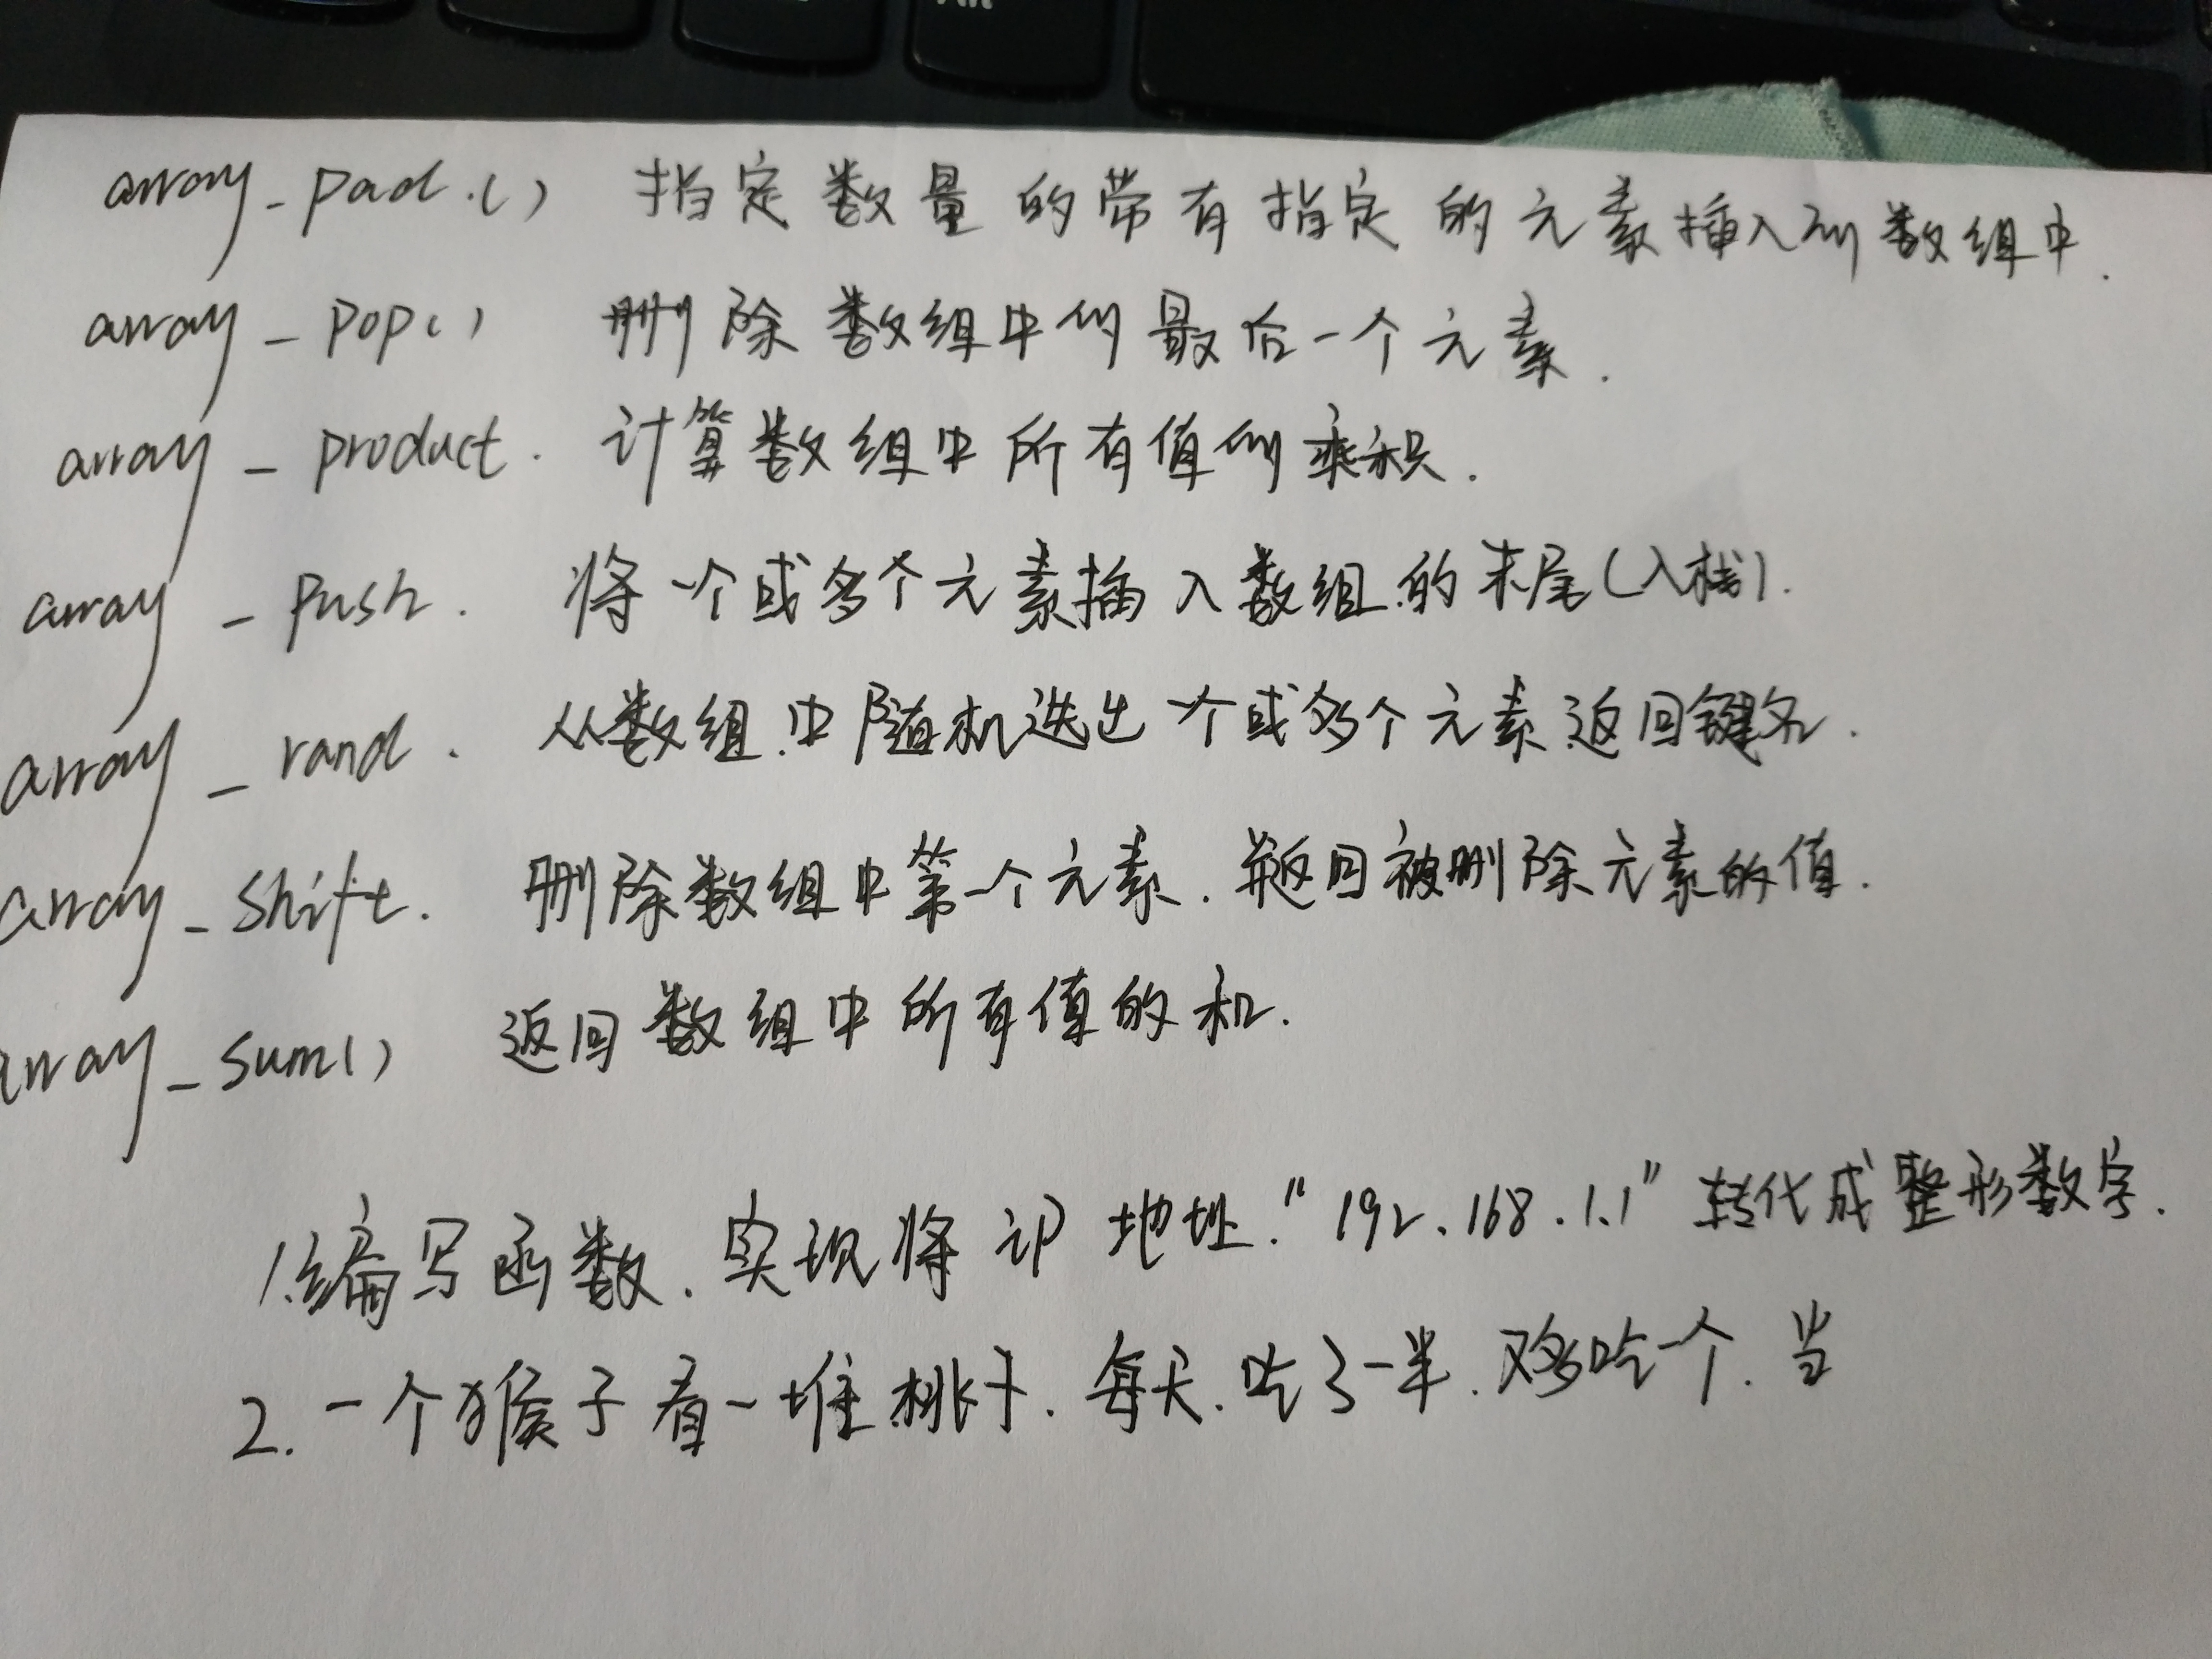 array_pad.() 指定数量的带有指定的元素插入到数组中.
array_pop() 删除数组中的最后一个元素.
array_product. 计算数组中所有值的乘积.
array_push. 将一个或多个元素插入数组的末尾(入栈).
array_rand. 从数组中随机选出一个或多个元素返回键名.
array_shift. 删除数组中第一个元素.并返回被删除元素的值.
array_sum() 返回数组中所有值的和.
1.编写函数.实现将 IP 地址."192.168.1.1"转化成整形数字.
2.一个猴子有一堆桃子.每天.吃了一半.又多吃一个.当